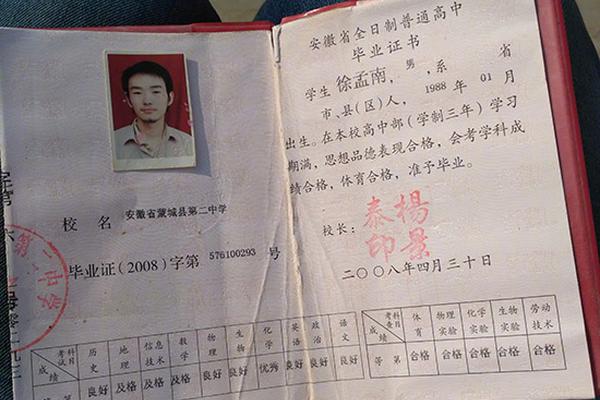 校名 安徽省蒙城县第二中学
毕业证(2008)字第 576100293 号
考试科目 历史 地理 信息技术 数学 物理 生物 化学 英语 政治 语文
成绩 良好 及格 及格 及格 良好 良好 优秀 良好 良好 良好
安徽省全日制普通高中
毕业证书
学生 徐孟南,男,系 省
市、县(区)人,1988年01月
出生。在本校高中部(学制三年)学习
期满,思想品德表现合格,会考学科成
绩合格,体育合格,准予毕业。
校长:
杨景泰印
二〇〇八年四月三十日
考查科目 体育 物理实验 化学实验 生物实验 劳动技术
等第 合格 合格 合格 合格 合格